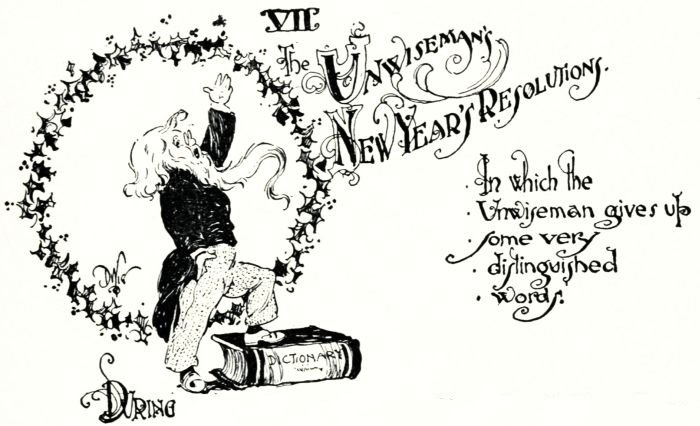 VII
The UNWISEMAN'S
NEW YEAR'S RESOLUTIONS.
In which the
· Unwiseman gives up
· some very
· distinguished
· words.
DICTIONARY
DURING